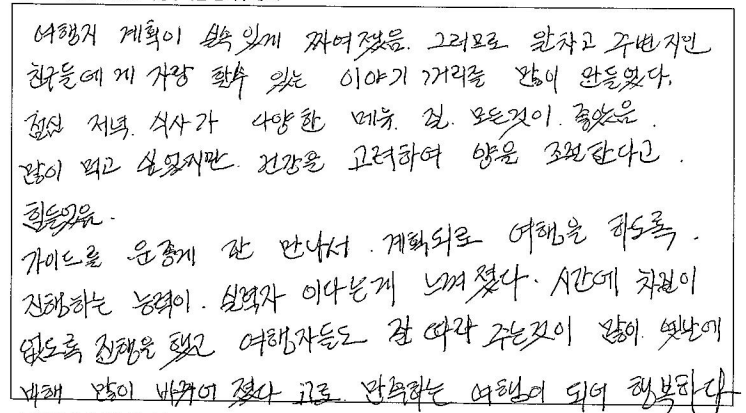 여행지 계획이 실속 있게 짜여졌음. 그러므로 알차고 주변 지인
친구들에게 자랑 할수 있는 이야기 거리를 많이 만들었다.
점심 저녁. 식사가 다양한 메뉴. 질. 모든것이. 좋았음.
많이 먹고 싶었지만. 건강을 고려하여 양을 조절한다고.
힘들었음.
가이드를 운좋게 잘 만나서. 계획되로 여행을 하도록.
진행하는 능력이. 실력자 이다는게 느껴졌다. 시간에 차질이
없도록 진행을 했고 여행자들도 잘 따라 주는것이 많이. 옛날에
비해 많이 바뀌어 졌다 고로. 만족하는 여행이 되어 행복하다